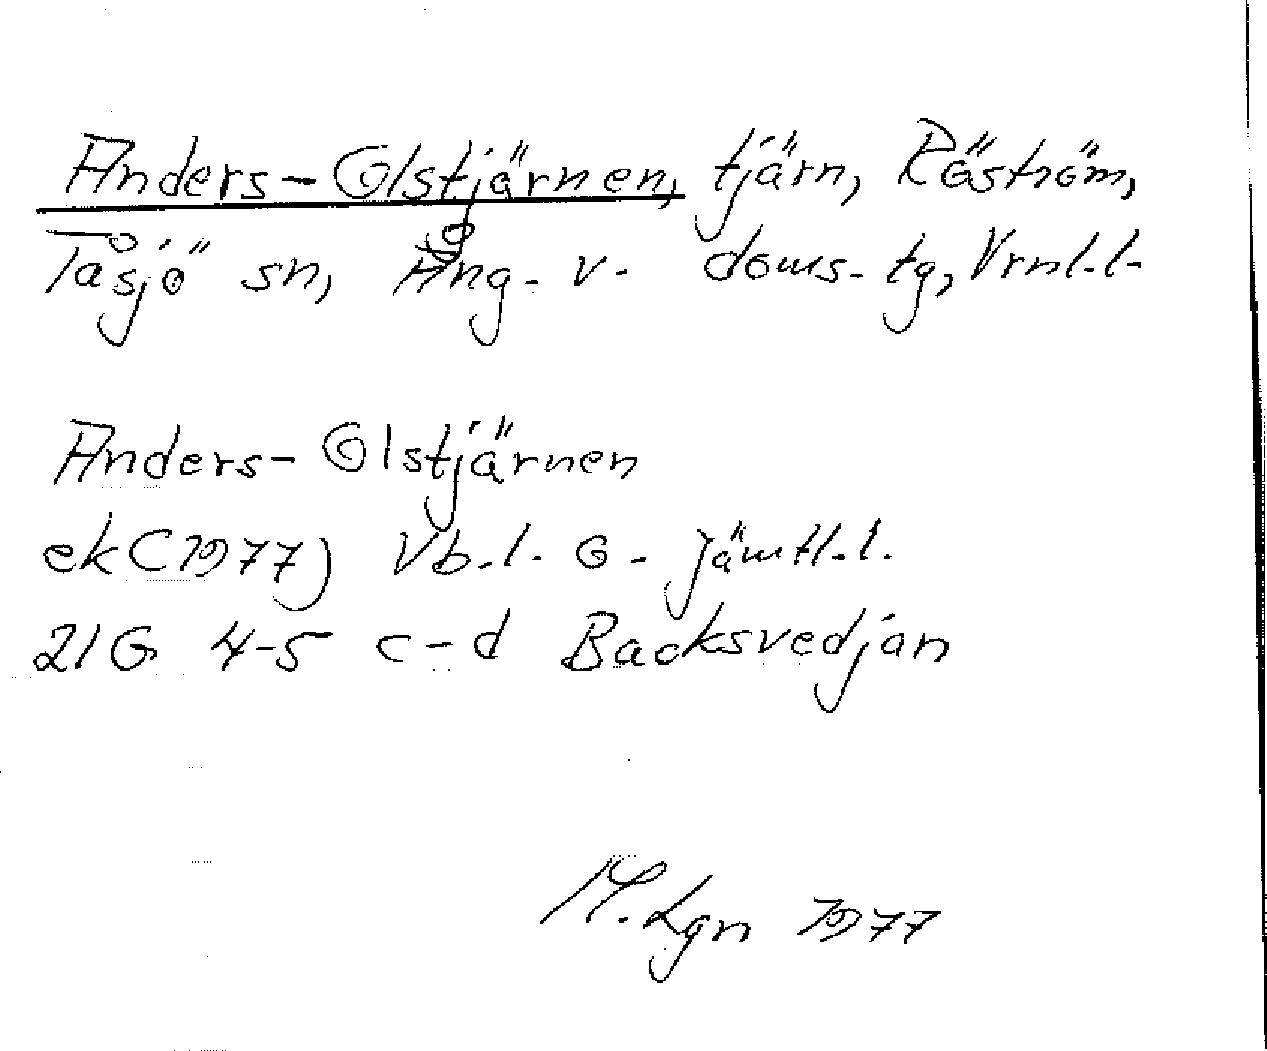 Anders-Olstjärnen, tjärn, Röström,
Tåsjö sn, Ång. v. doms. tg, Vrnl.l.
Anders-Olstjärnen
ek (1977) Vb.l. o. Jämtl.l.
21G 4-5 c-d Backsvedjan
M. Lgn 1977